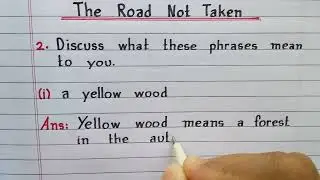 The Road Not Taken
2. Discuss what these phrases mean
to you.
(i) a yellow wood
Ans: Yellow wood means a forest
in the aut